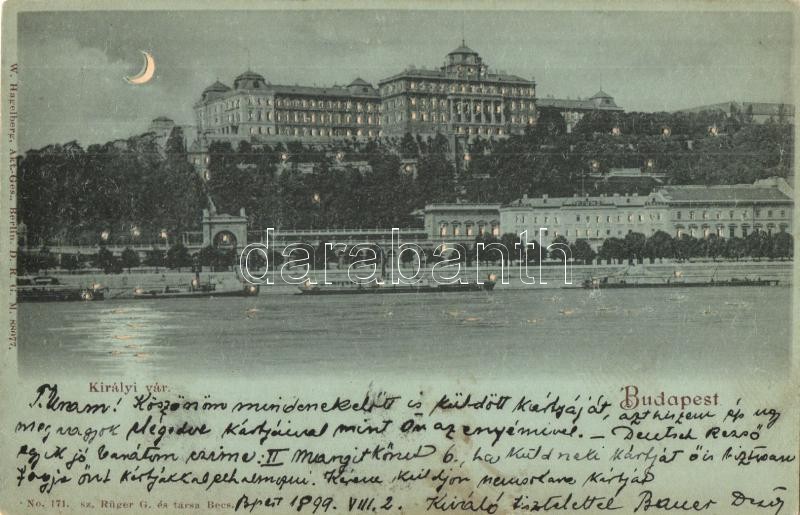 W. Hagelberg, Akt.-Ges., Berlin. D. R. G. M. 88077.
darabanth
Királyi vár.
Budapest
T. Uram! Köszönöm mindenekelőtt is küldött kártyáját, azt hiszem ép ugy
meg vagyok elégedve kártyáival mint Ön az enyémivel. – Deutsch Rezső
egyik jó barátom czime: II Margit körut 6. ha küld neki kártyát ő is tisztesen
fogja Önt kártyákkal elhalmozni. Kérem küldjön nemsokára kártyát
No. 171. sz. Rüger G. és társa Becs.
Bpest 1899. VIII. 2. Kiváló tisztelettel Bauer Dezső